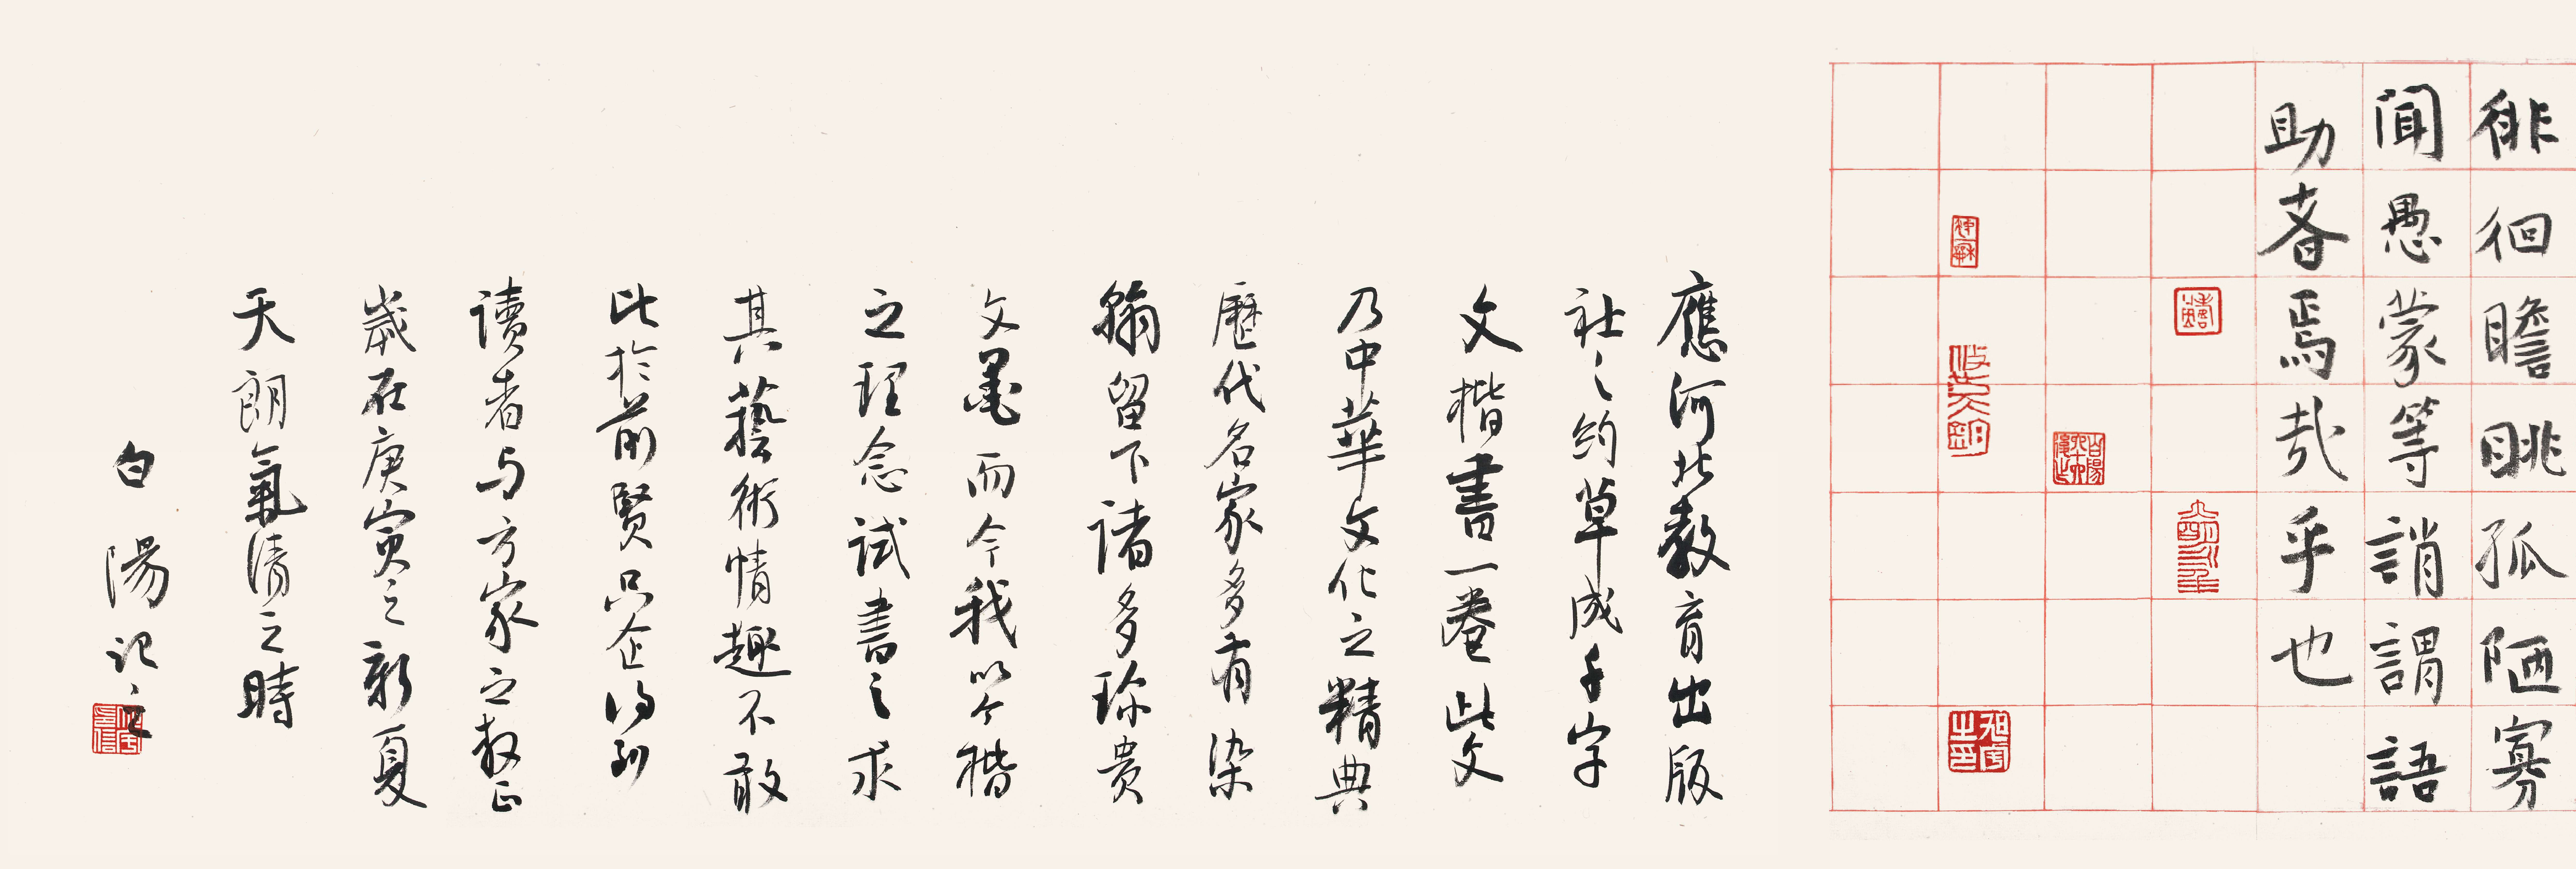 徘徊瞻眺孤陋寡
聞愚蒙等誚謂語
助者焉哉乎也
應河北教育出版
社之約草成千字
文楷書一卷此文
乃中華文化之精典
歷代名家多有染
翰留下諸多珍貴
文墨而今我以今楷
之理念試書之求
其藝術情趣不敢
比於前賢只企得到
讀者与方家之教正
歲在庚寅之新夏
天朗氣清之時
白陽記之